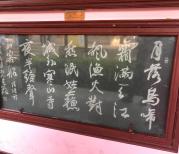 月落烏啼
霜滿天江
楓漁火對
愁眠姑蘇
城外寒山寺
夜半鐘聲
到客船